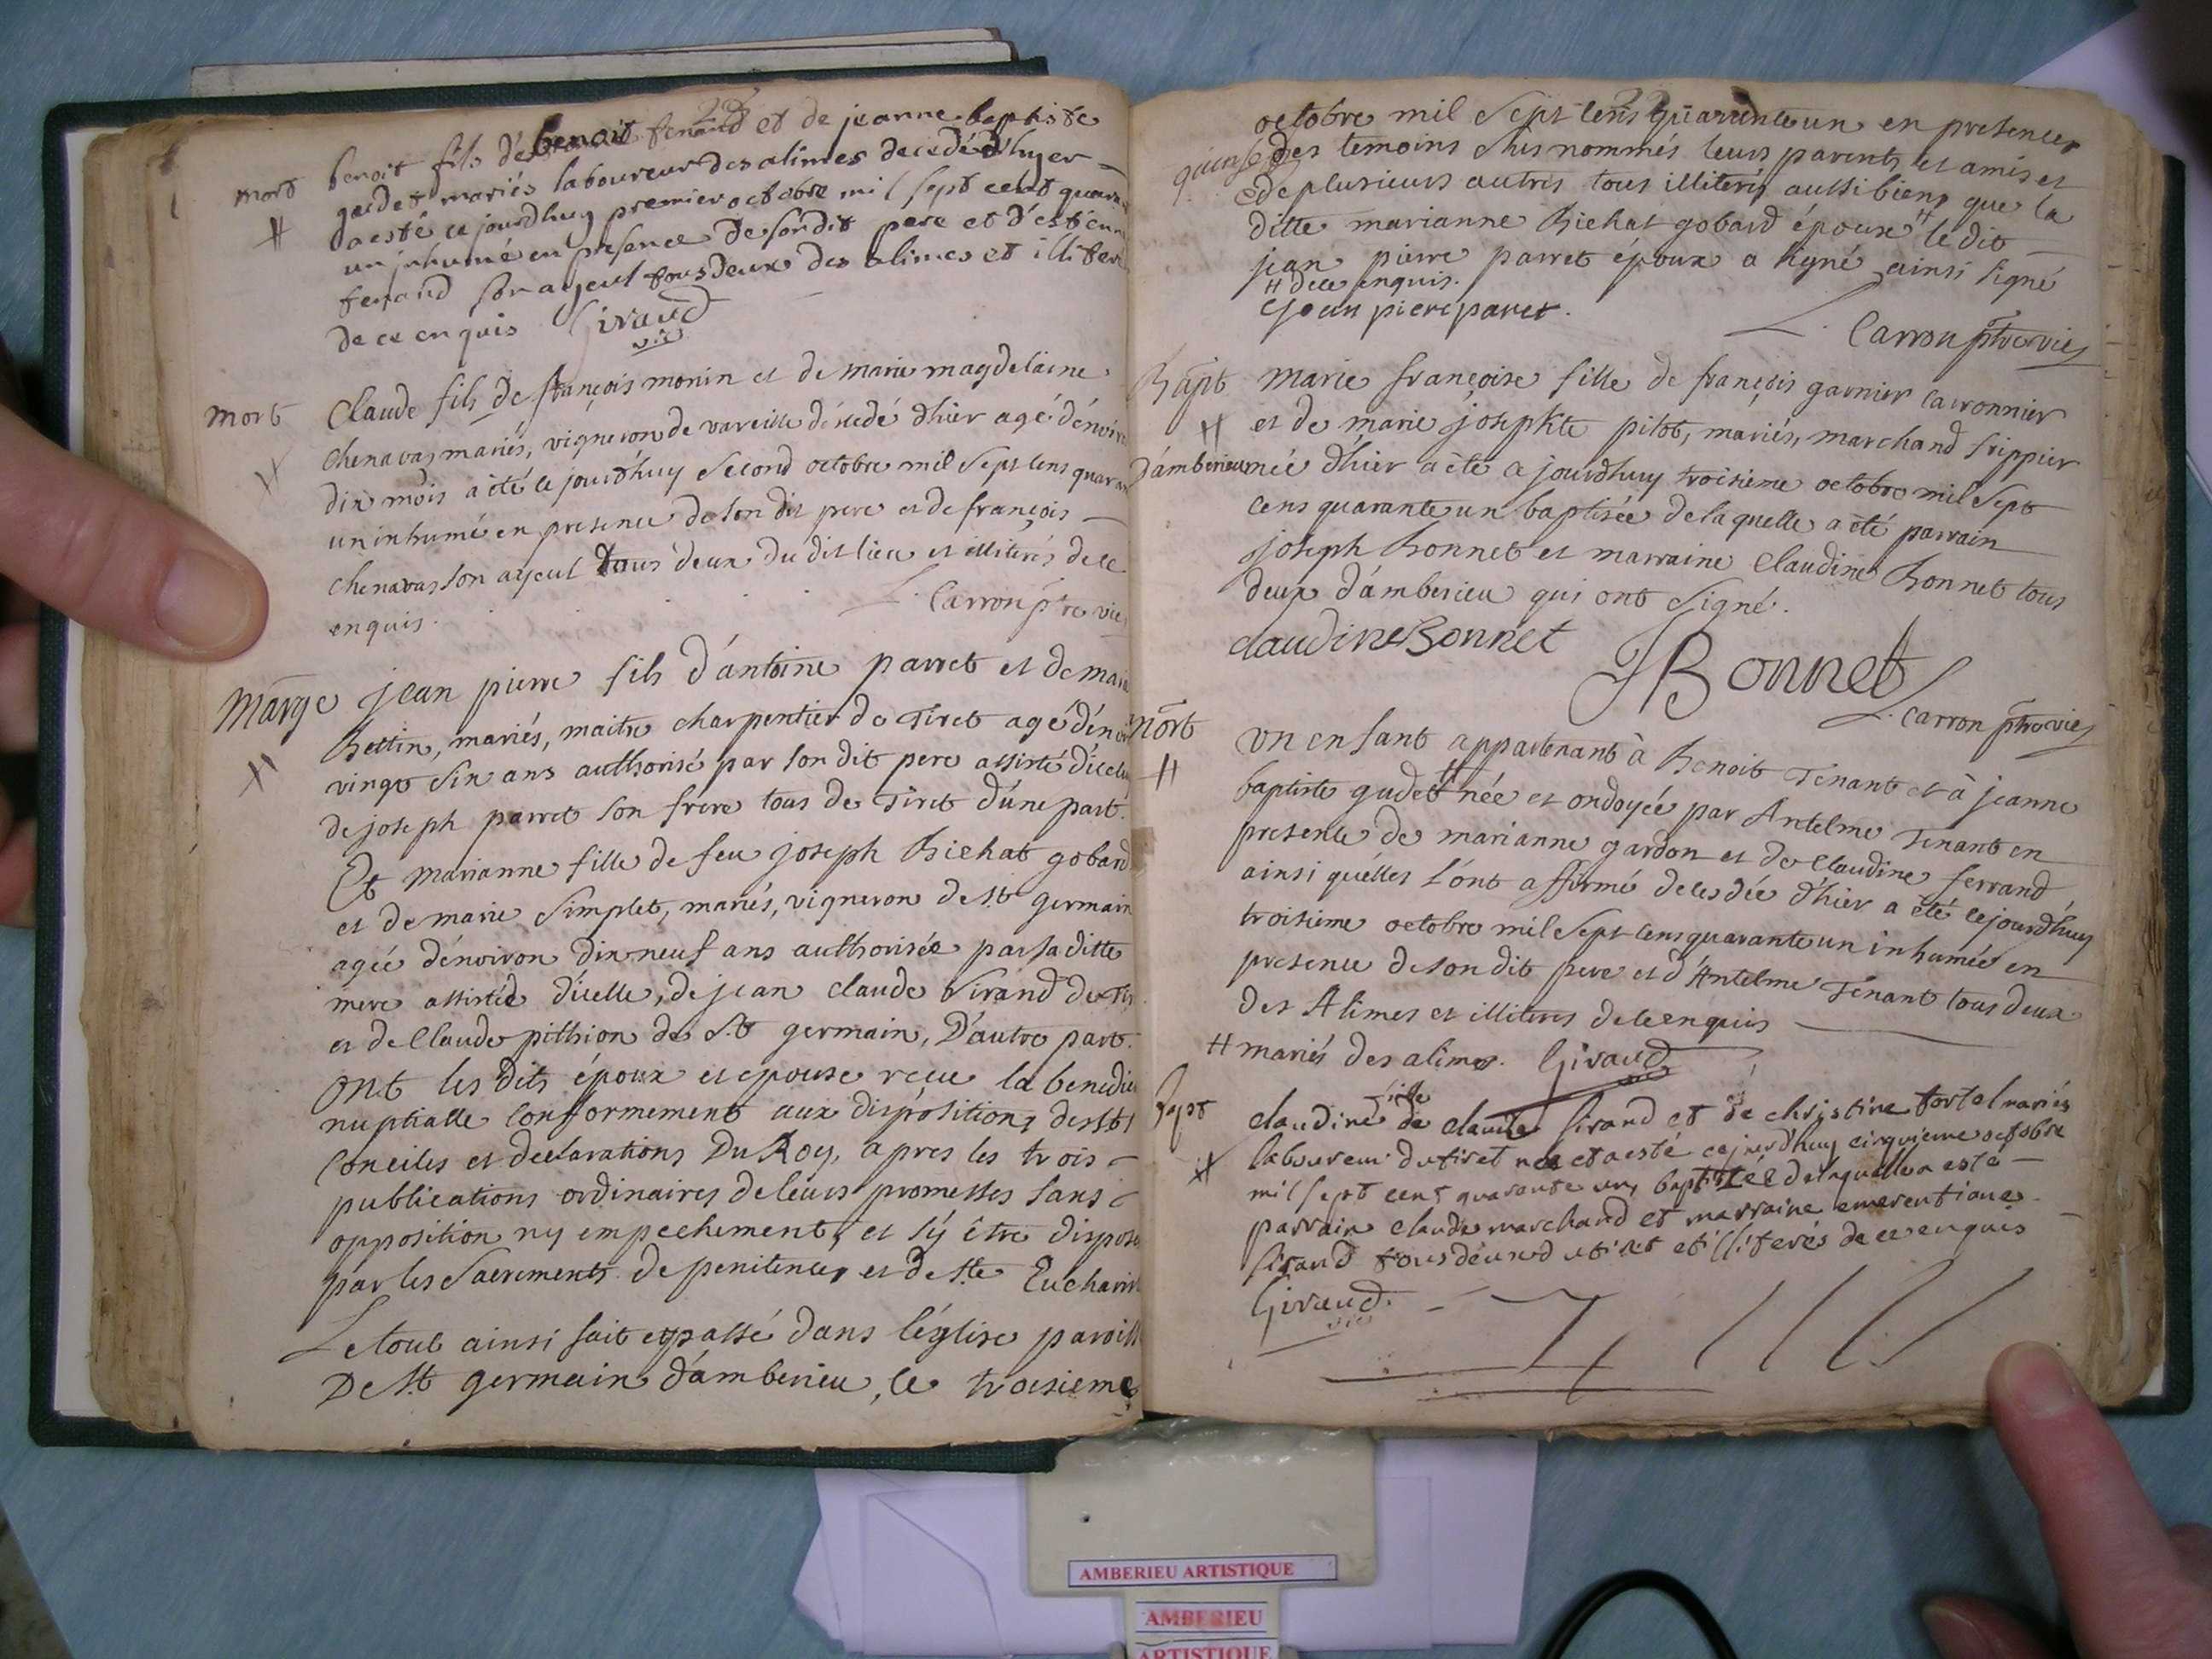 mort
benoit fils de benoit tenand et de jeanne baptiste
gudet mariés laboureur des alimes decedé d'hyer
a esté ce jourdhuy premier octobre mil sept cent quaran
un inhumé en presence de son dit pere et d'estienne
tenand son ayeul tous deux des alimes et illiteré
de ce enquis Giraud
vic
mort
Claude fils de françois monin et de marie magdelaine
chenavas mariés, vigneron de vareille décedé dhier agé dénviro
dix mois a été ce jourdhuy second octobre mil sept cens quaran
un inhumé en presence de son dit pere et de françois
chenavas son ayeul tous deux du dit lieu et illiterés de ce
enquis.
L. Carron ptre vic
Marge
jean pierre fils d'antoine parret et de marie
Bettin, mariés, maitre charpentier de Tiret agé dénvi
vingt six ans authorisé par son dit pere assisté d'icelu
de joseph parret son frere tous de Tiret d'une part.
Et marianne fille de feu joseph Bichat gobard
et de marie Simplet, mariés, vigneron de st germain
agée dénviron dix neuf ans authorisée par sa ditte
mere assistée d'icelle, de jean claude Sirand de Tir
et de Claude pithion de St germain, D'autre part.
Ont les dits époux et epouse reçu la benedic
nuptialle conformement aux dispositions des sts
Conciles et declarations Du Roy, apres les trois
publications ordinaires de leurs promesses sans
opposition ny empechement, et s'y être disposé
par les Sacrements de penitence, et de ste Eucharis
Le tout ainsi fait et passé dans l'église paroiss
De St germain d'amberieu, ce troisieme
octobre mil sept cens quarante un en presence
des temoins sus nommés leurs parents et amis et
de plusieurs autres tous illiterés aussi bien que la
ditte marianne Bichat gobard épouse # le dit
jean pierre parret époux a signé ainsi signé
# de ce enquis.
Jean piere paret.
L. Carron ptre vic
Bapt
d'amberieu
Marie françoise fille de françois garnier carronnier
et de marie josephte pitot, mariés, marchand frippier
née d'hier a été ce jourdhuy troisieme octobre mil sept
cens quarante un baptisée de laquelle a été parrain
joseph Bonnet et marraine Claudine Bonnet tous
deux d'amberieu qui ont signé.
claudine Bonnet
JBonnet
L. Carron ptre vic
Mort
#
un enfant appartenant à Benoit Tenant et à jeanne
baptiste gudet # née et ondoyée par Antelme Tenant en
presence de marianne gardon et de Claudine ferrand
ainsi qu'elles l'ont affirmé decedée d'hier a été ce jourdhuy
troisieme octobre mil sept cens quarante un inhumée en
presence de son dit pere et d'Antelme Tenant tous deux
des Alimes et illiteres de ce enquis
# mariés des alimes. Giraud
vic
Bapt
#
claudine fille de claude sirand et de christine tortel mariés
laboureur du tiret née et a esté ce jourd'huy cinquieme octobre
mil sept cent quarante un, baptisée de laquelle a esté
parrain claude marchand et marraine emerentiane
sirand tous deux du tiret et illiterés de ce enquis
Giraud
vic
AMBERIEU ARTISTIQUE
AMBERIEU
ARTISTIQUE